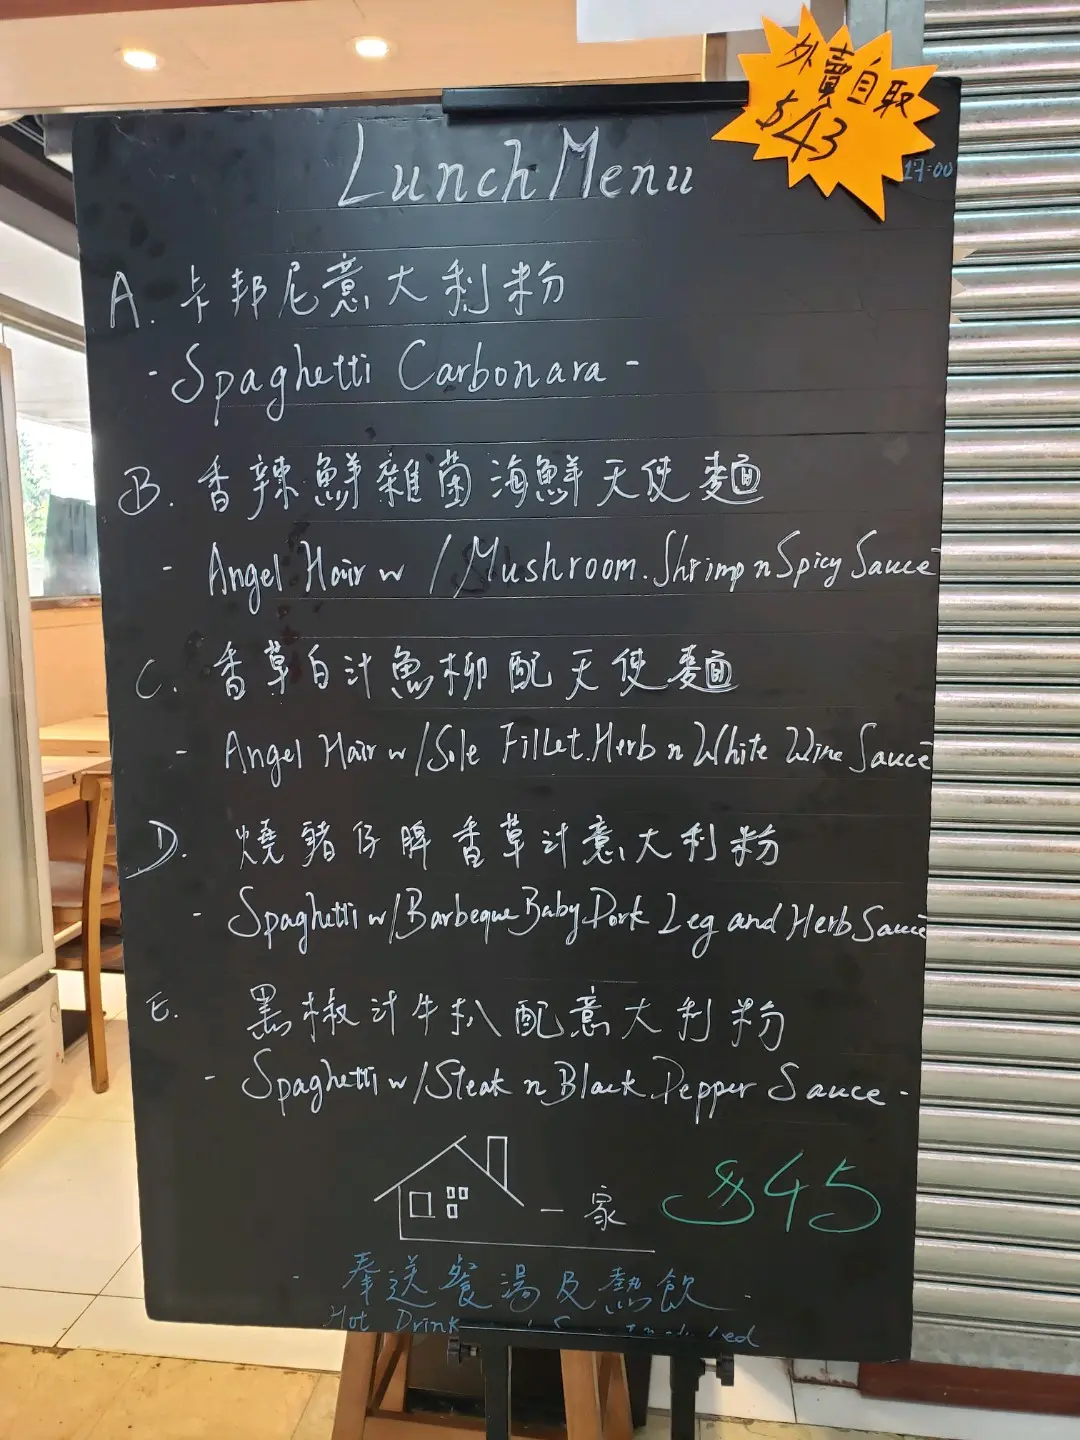 外賣自取
$43
17:00
Lunch Menu
A. 卡邦尼意大利粉
- Spaghetti Carbonara -
B. 香辣鮮雜菌海鮮天使麵
- Angel Hair w/Mushroom.Shrimp n Spicy Sauce
C. 香草白汁魚柳配天使麵
- Angel Hair w/Sole Fillet.Herb n White Wine Sauce
D. 燒豬仔脾香草汁意大利粉
- Spaghetti w/Barbeque Baby Pork Leg and Herb Sauce
E. 黑椒汁牛扒配意大利粉
- Spaghetti w/Steak n Black Pepper Sauce -
一家
$45
奉送餐湯及熱飲
Hot Drink